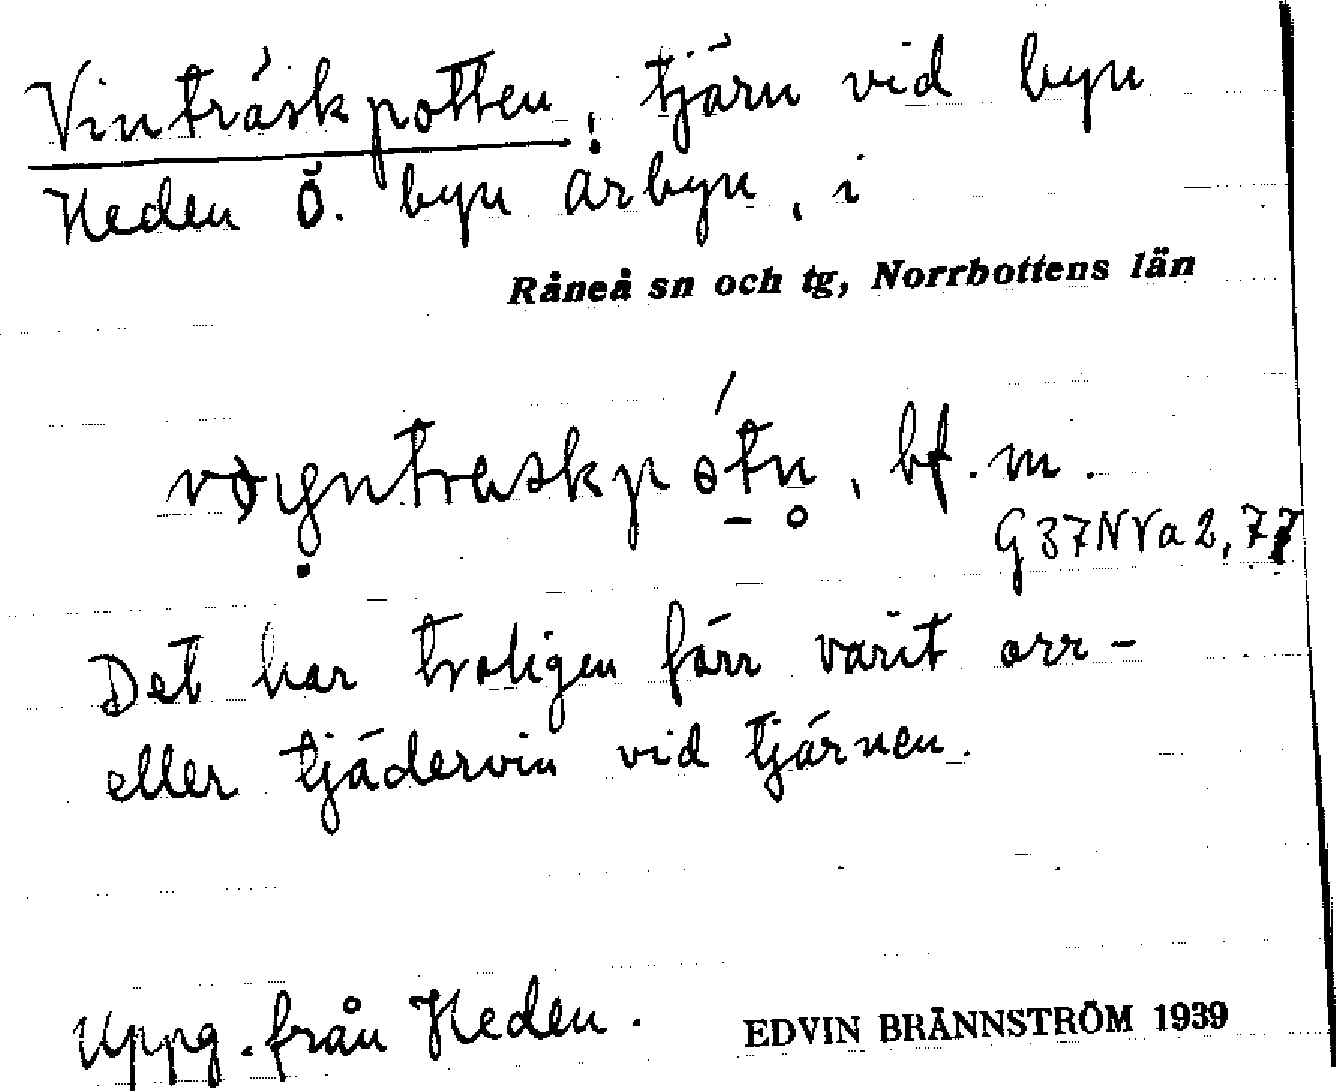 Vinträskpotten, tjärn vid byn
Heden Ö. byn Årbyn, i
Råneå sn och tg, Norrbottens län
bf. m.
G37NVa2,77
Det har troligen förr varit orr-
eller tjädervin vid tjärnen.
Uppg. från Heden.
EDVIN BRÄNNSTRÖM 1939